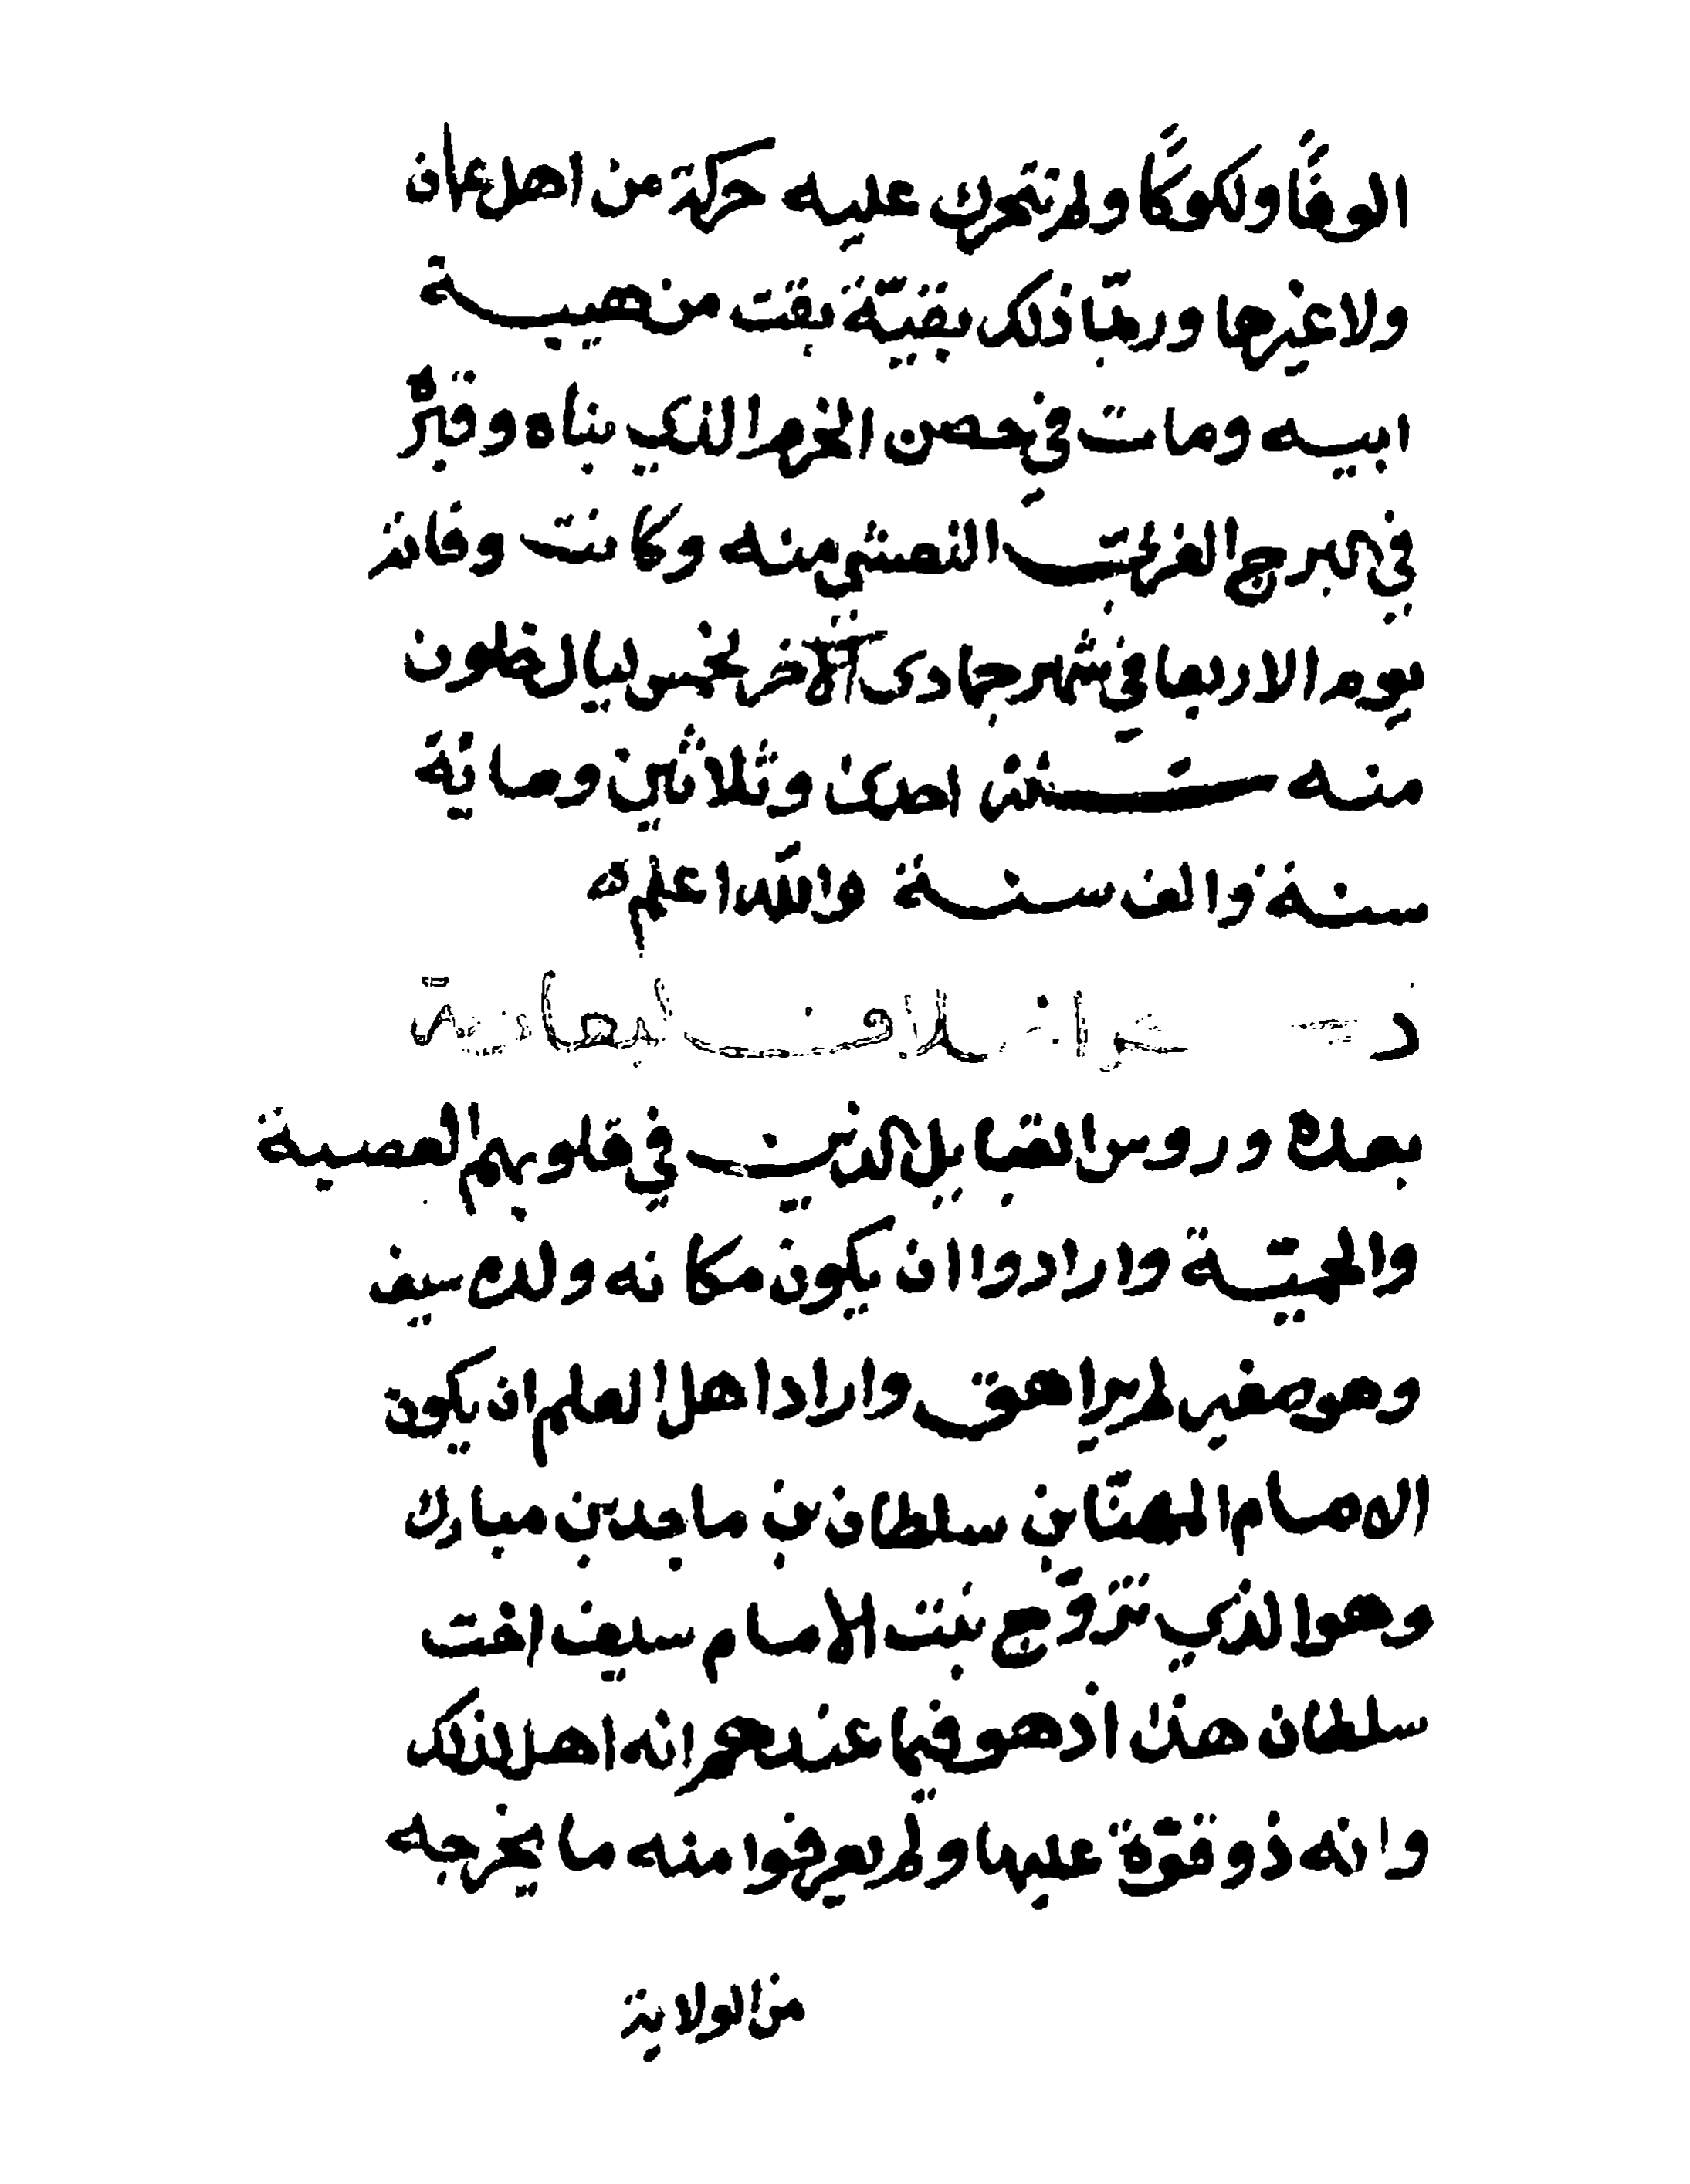 الوفًا ولكوكًا ولم تتحرك عليه حركة من اهل عمان
ولا غيرها وربمّا ذلك بقيّة بقت من هيبة
ابيه ومات في حصن الحزم الذي بناه وقبرُه
في البرج الغربي النعشي منه وكانت وفاته
يوم الاربعا في شهر جمادى الآخر لخمس ليال خلون
منه سنة احدى وثلاثين ومائة
سنة والف سنة والله اعلم
اختلاف اليعاربة
بعده وروس القبايل الذين في قلوبهم العصبية
والحميّة وارادوا ان يكون مكانه ولده سيف
وهو صغير لم يراهق واراد اهل العلم ان يكون
الامام المهنّا بن سلطان بن ماجد بن مبارك
وهو الذي تزوّج بنت الامام سيف اخت
سلطان هذا اذ هو فيما عندهم انه اهل لذلك
وانه ذو قوّة عليها ولم يعرفوا منه ما يخرجه
من الولاية